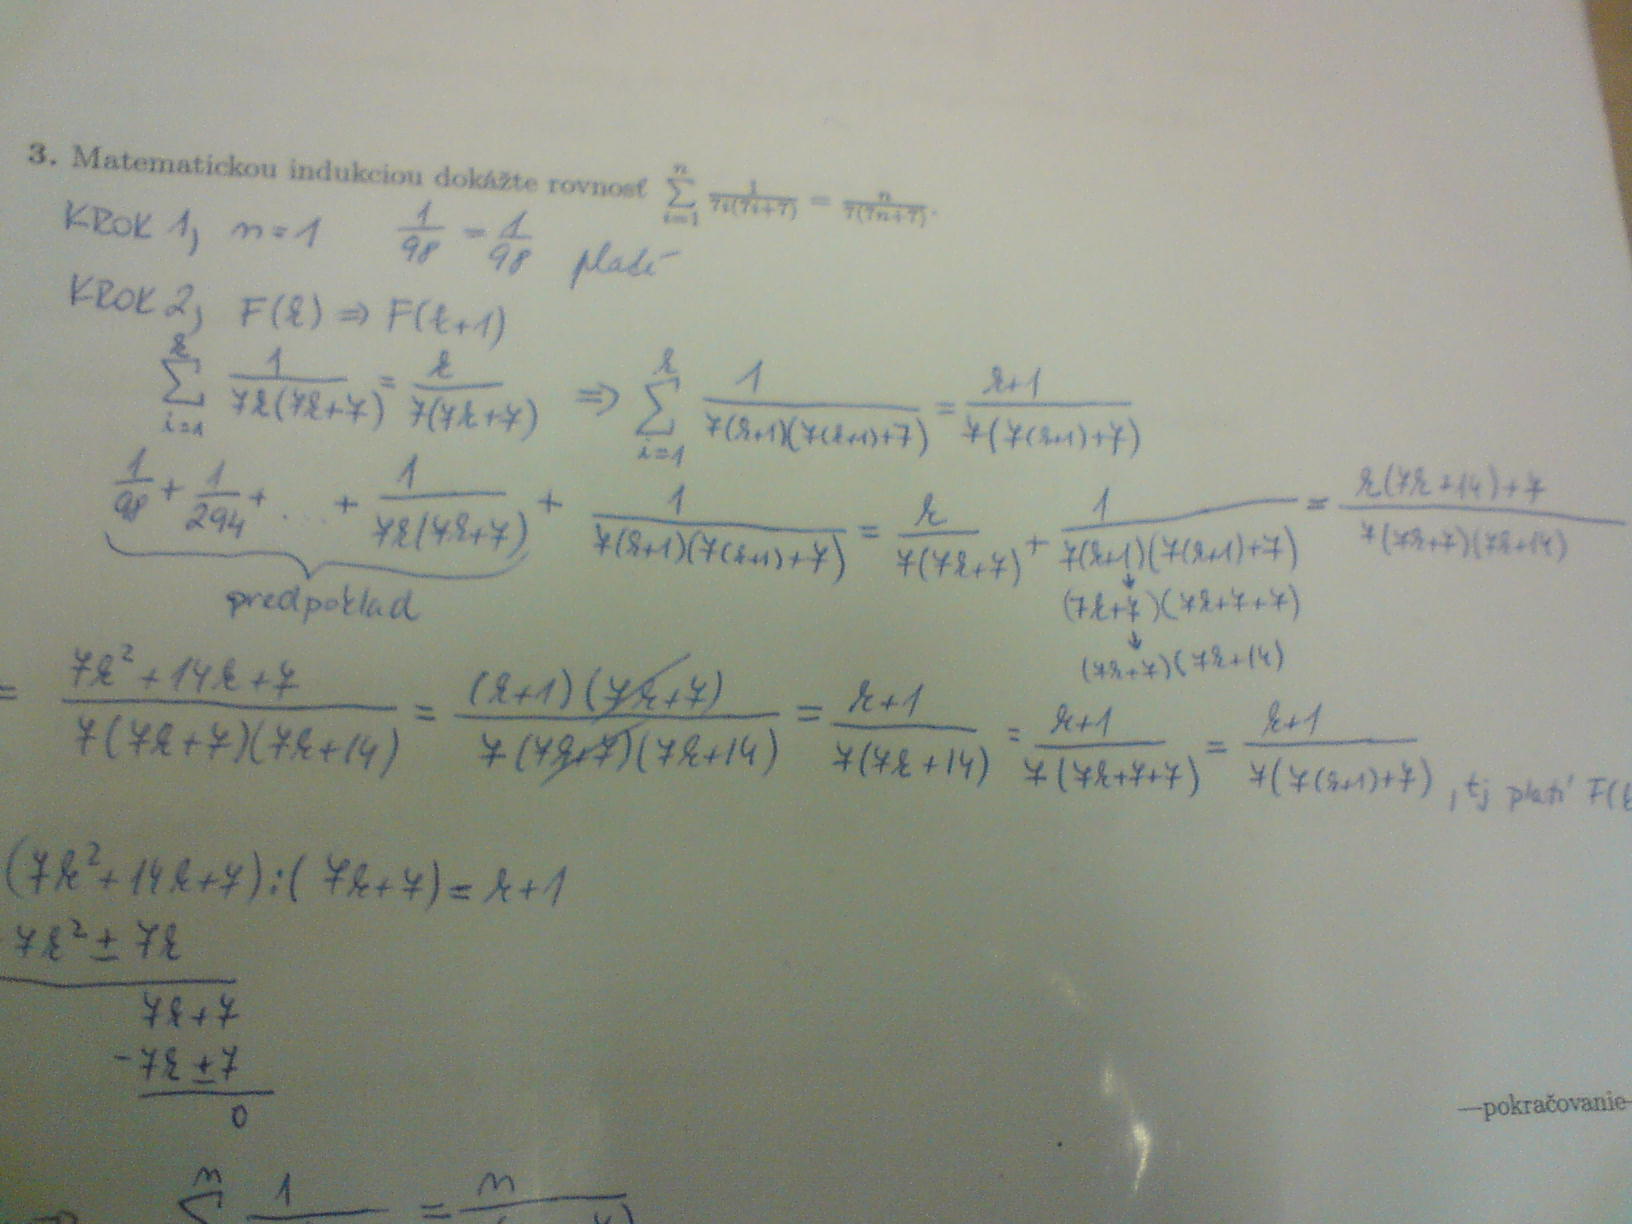 3. Matematickou indukciou dokážte rovnosť \sum_{i=1}^{n} \frac{1}{7i(7i+7)} = \frac{n}{7(7n+7)}.
KROK 1, n=1 \frac{1}{98} = \frac{1}{98} platí
KROK 2, F(k) ⇒ F(k+1)
\sum_{i=1}^{k} \frac{1}{7k(7k+7)} = \frac{k}{7(7k+7)} ⇒ \sum_{i=1}^{k} \frac{1}{7(k+1)(7(k+1)+7)} = \frac{k+1}{7(7(k+1)+7)}
\frac{1}{98} + \frac{1}{294} + ... + \frac{1}{7k(7k+7)} + \frac{1}{7(k+1)(7(k+1)+7)} = \frac{k}{7(7k+7)} + \frac{1}{7(k+1)(7(k+1)+7)} = \frac{k(7k+14)+7}{7(7k+7)(7k+14)}
predpoklad
↓
(7k+7)(7k+7+7)
↓
(7k+7)(7k+14)
= \frac{7k^2+14k+7}{7(7k+7)(7k+14)} = \frac{(k+1)(7k+7)}{7(7k+7)(7k+14)} = \frac{k+1}{7(7k+14)} = \frac{k+1}{7(7k+7+7)} = \frac{k+1}{7(7(k+1)+7)}, tj platí F(
(7k^2+14k+7):(7k+7)=k+1
7k^2 ± 7k
7k+7
-7k ± 7
0
—pokračovanie
\sum^{n} \frac{1}{} = \frac{n}{}